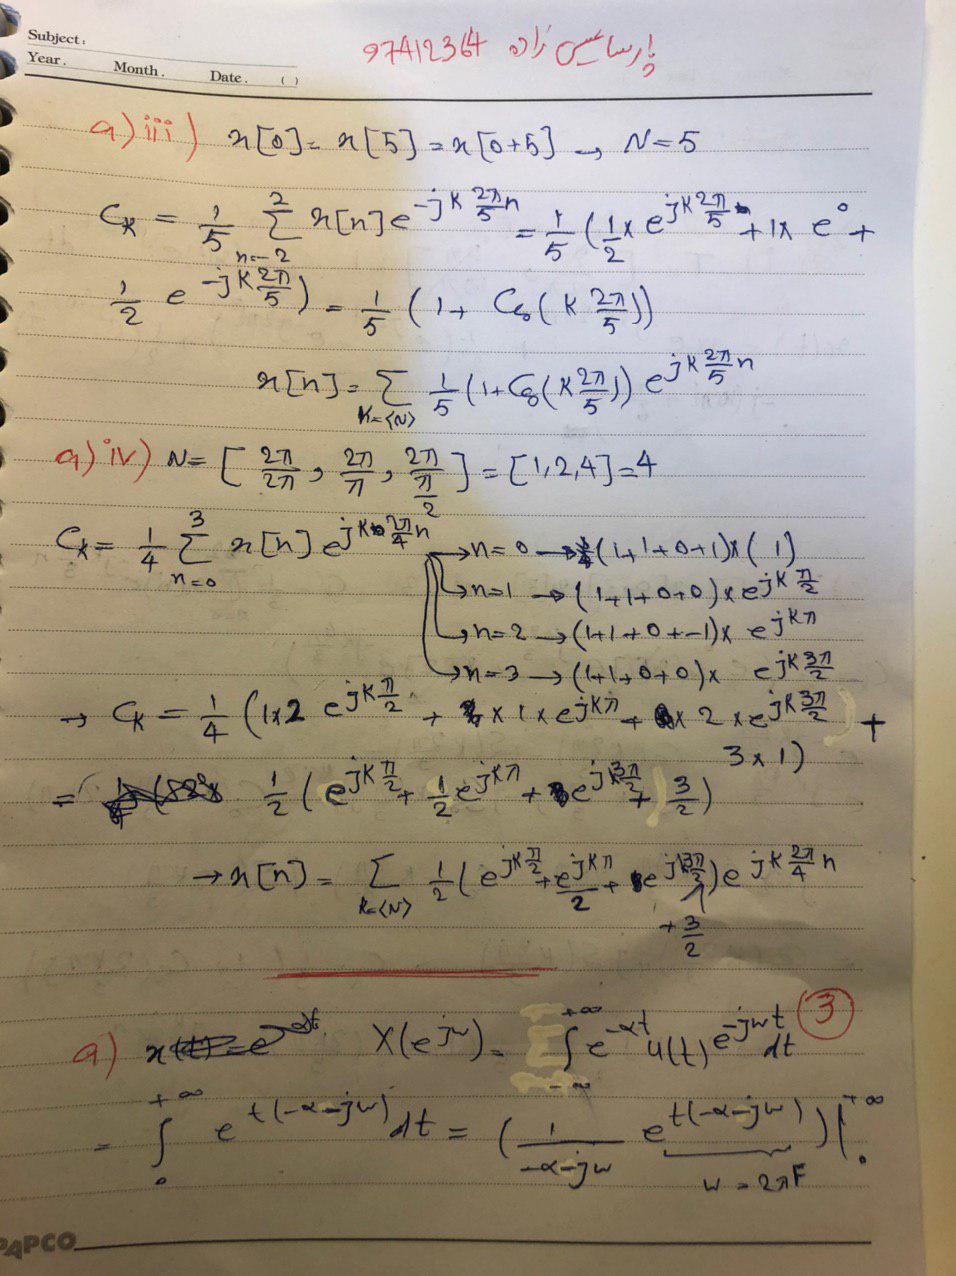 Subject:
Year. Month. Date. ( )
پارسا عیسی زاده 97412364
a) iii) x[0] = x[5] = x[0+5] → N=5
C_k = 1/5 Σ_{n=-2}^{2} x[n] e^{-jk 2π/5 n} = 1/5 ( 1/2 × e^{jk 2π/5} + 1× e^0 +
1/2 e^{-jk 2π/5} ) = 1/5 ( 1 + Cos( k 2π/5 ))
x[n] = Σ_{k=<N>} 1/5 (1+Cos(k 2π/5)) e^{jk 2π/5 n}
a) iv) N = [ 2π/2π , 2π/π , 2π/(π/2) ] = [1,2,4] = 4
C_k = 1/4 Σ_{n=0}^{3} x[n] e^{jk 2π/4 n} → n=0 → (1+1+0+1)×( 1 )
→ n=1 → (1+1+0+0)× e^{jk π/2}
→ n=2 → (1+1+0+-1)× e^{jkπ}
→ n=3 → (1+1+0+0)× e^{jk 3π/2}
→ C_k = 1/4 (1×2 e^{jk π/2} + 1 × e^{jkπ} + 2 × e^{jk 3π/2} +
3×1)
= 1/2 ( e^{jk π/2} + 1/2 e^{jkπ} + e^{jk 3π/2} + 3/2 )
→ x[n] = Σ_{k=<N>} 1/2 ( e^{jk π/2} + e^{jkπ}/2 + e^{jk 3π/2} ) e^{jk 2π/4 n}
+ 3/2
3
a) X(e^{jw}) = ∫_{-∞}^{+∞} e^{-αt} u(t) e^{-jwt} dt
= ∫_0^{+∞} e^{t(-α-jw)} dt = ( 1/(-α-jw) e^{t(-α-jw)} ) |_0^{+∞}
w = 2πF
PAPCO